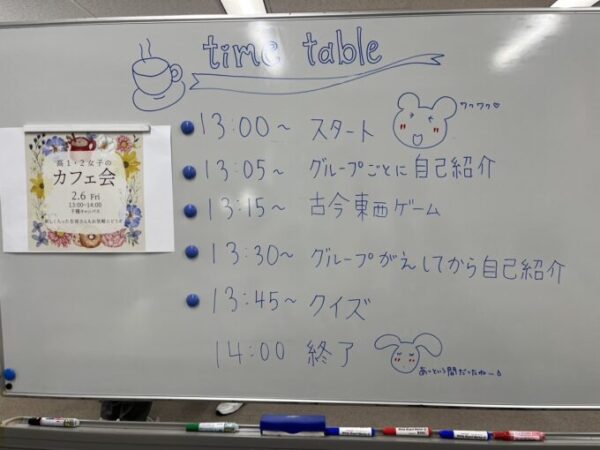 time table
13:00～ スタート
ワクワク♡
13:05～ グループごとに自己紹介
13:15～ 古今東西ゲーム
13:30～ グループがえしてから自己紹介
13:45～ クイズ
14:00 終了
あっという間だったね～
高1・2女子の
カフェ会
2.6 Fri
13:00-14:00
千種キャンパス